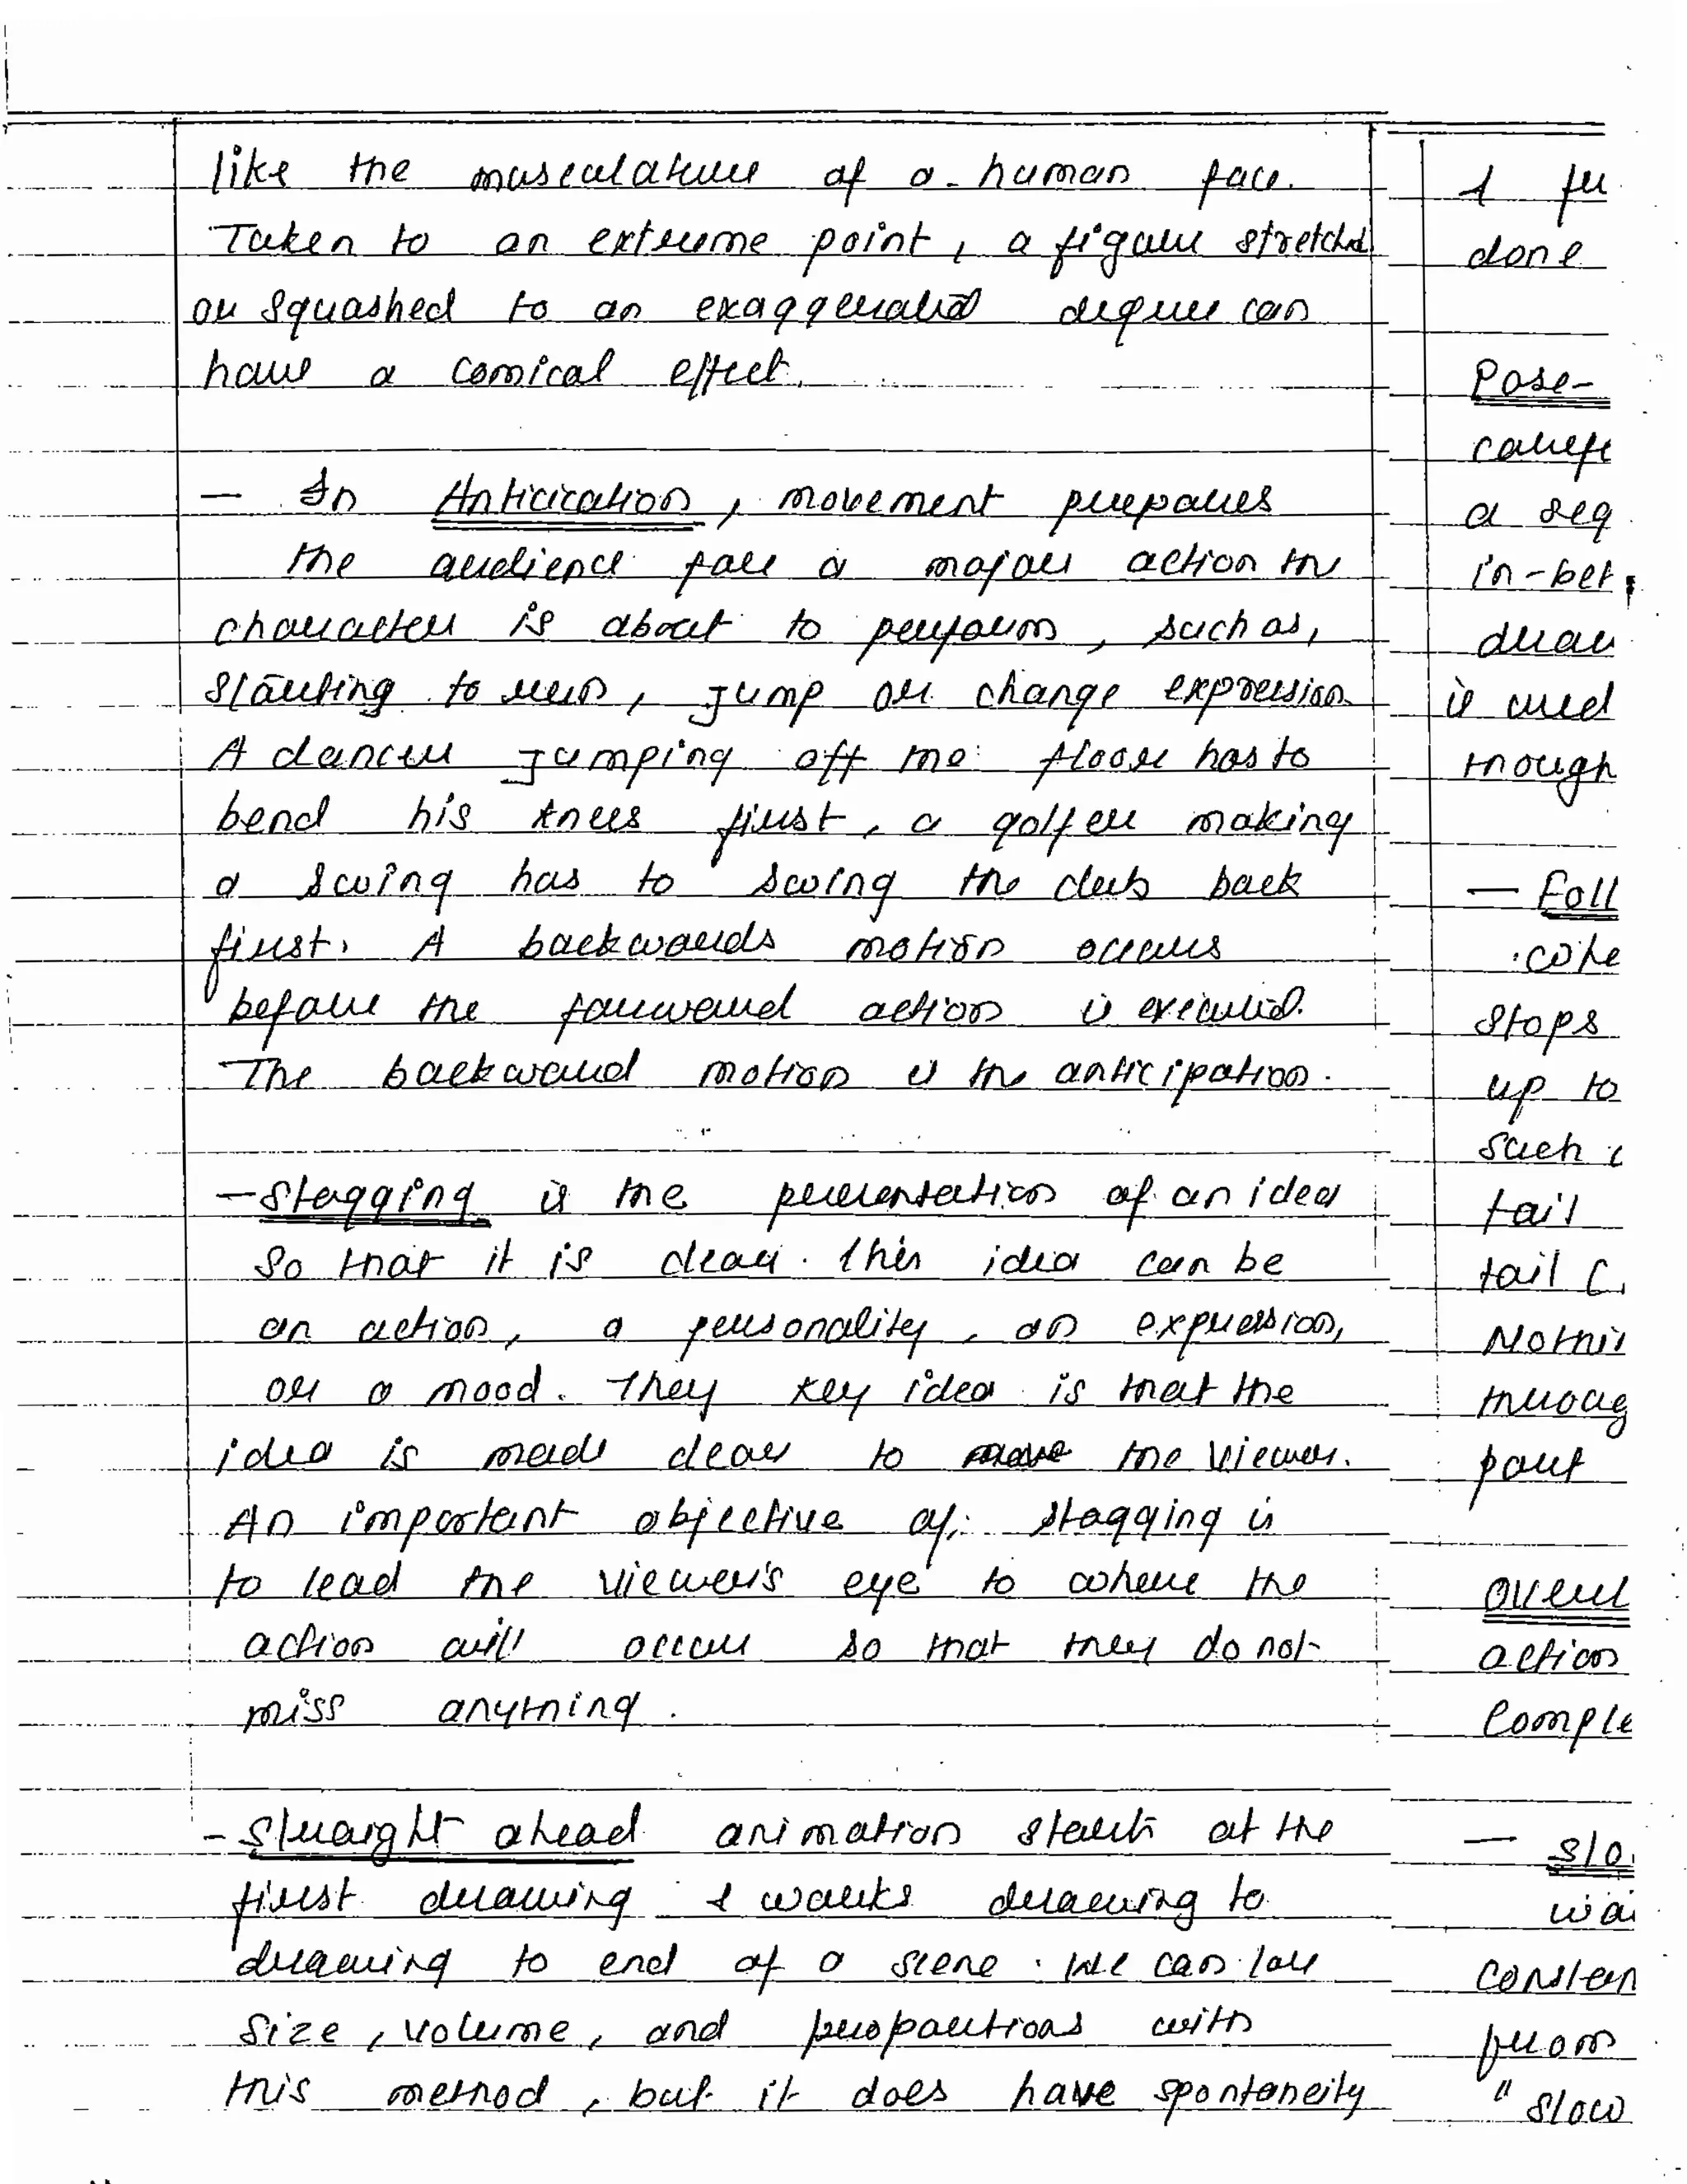 like the musculature of a human face.
Taken to an extreme point, a figure stretched
or squashed to an exaggerated degree can
have a comical effect.
— In Anticication, movement prepares
the audience for a major action the
character is about to perform, such as,
starting to run, jump or change expression
A dancer jumping off the floor has to
bend his knees first, a golfer making
a swing has to swing the club back
first. A backwards motion occurs
before the forward action is executed.
The backward motion is the anticipation.
— Stagging is the presentation of an idea
so that it is clear. This idea can be
an action, a personality, an expression,
or a mood. They key idea is that the
idea is made clear to the viewer.
An important objective of stagging is
to lead the viewer's eye to where the
action will occur so that they do not
miss anything.
- Straight ahead animation starts at the
first drawing & works drawing to
drawing to end of a scene. We can lose
size, volume, and proportions with
this method, but it does have spontaneity
& fr
done
Pose-
careft
a seq
in-bet
draw
is used
though
— Foll
whe
stops
up to
such
tail
tail C
Nothi
throug
part
overl
action
Comple
— Slo
wa
constan
from
"slow